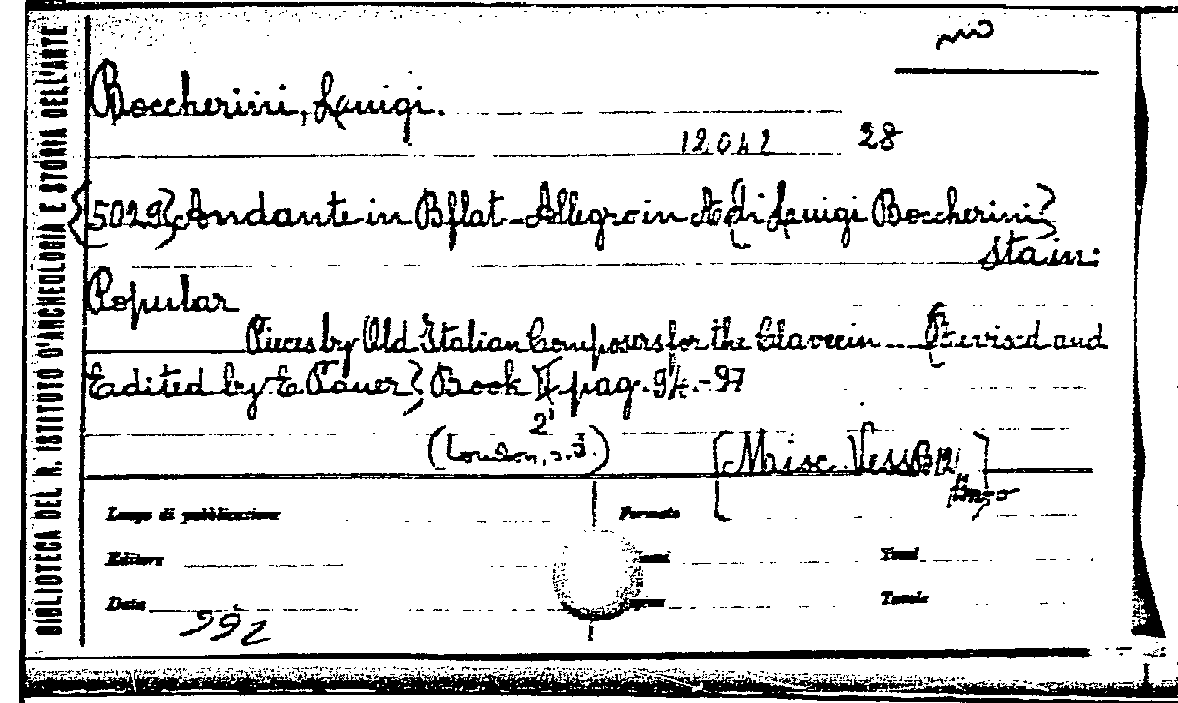 BIBLIOTECA DEL R. ISTITUTO D'ARCHEOLOGIA E STORIA DELL'ARTE
Boccherini, Luigi.
12042 28
{5029} Andante in B flat - Allegro in A {di Luigi Boccherini}
sta in:
Popular
Pieces by Old Italian Composers for the Clavecin ... {Revised and
Eadited by E. Pauer} Book II pag. 94.-97
2
(London, s.d.) [Misc. Vess B 12]
Luogo di pubblicazione Formato
Editore Tomi
Data Tavole
992